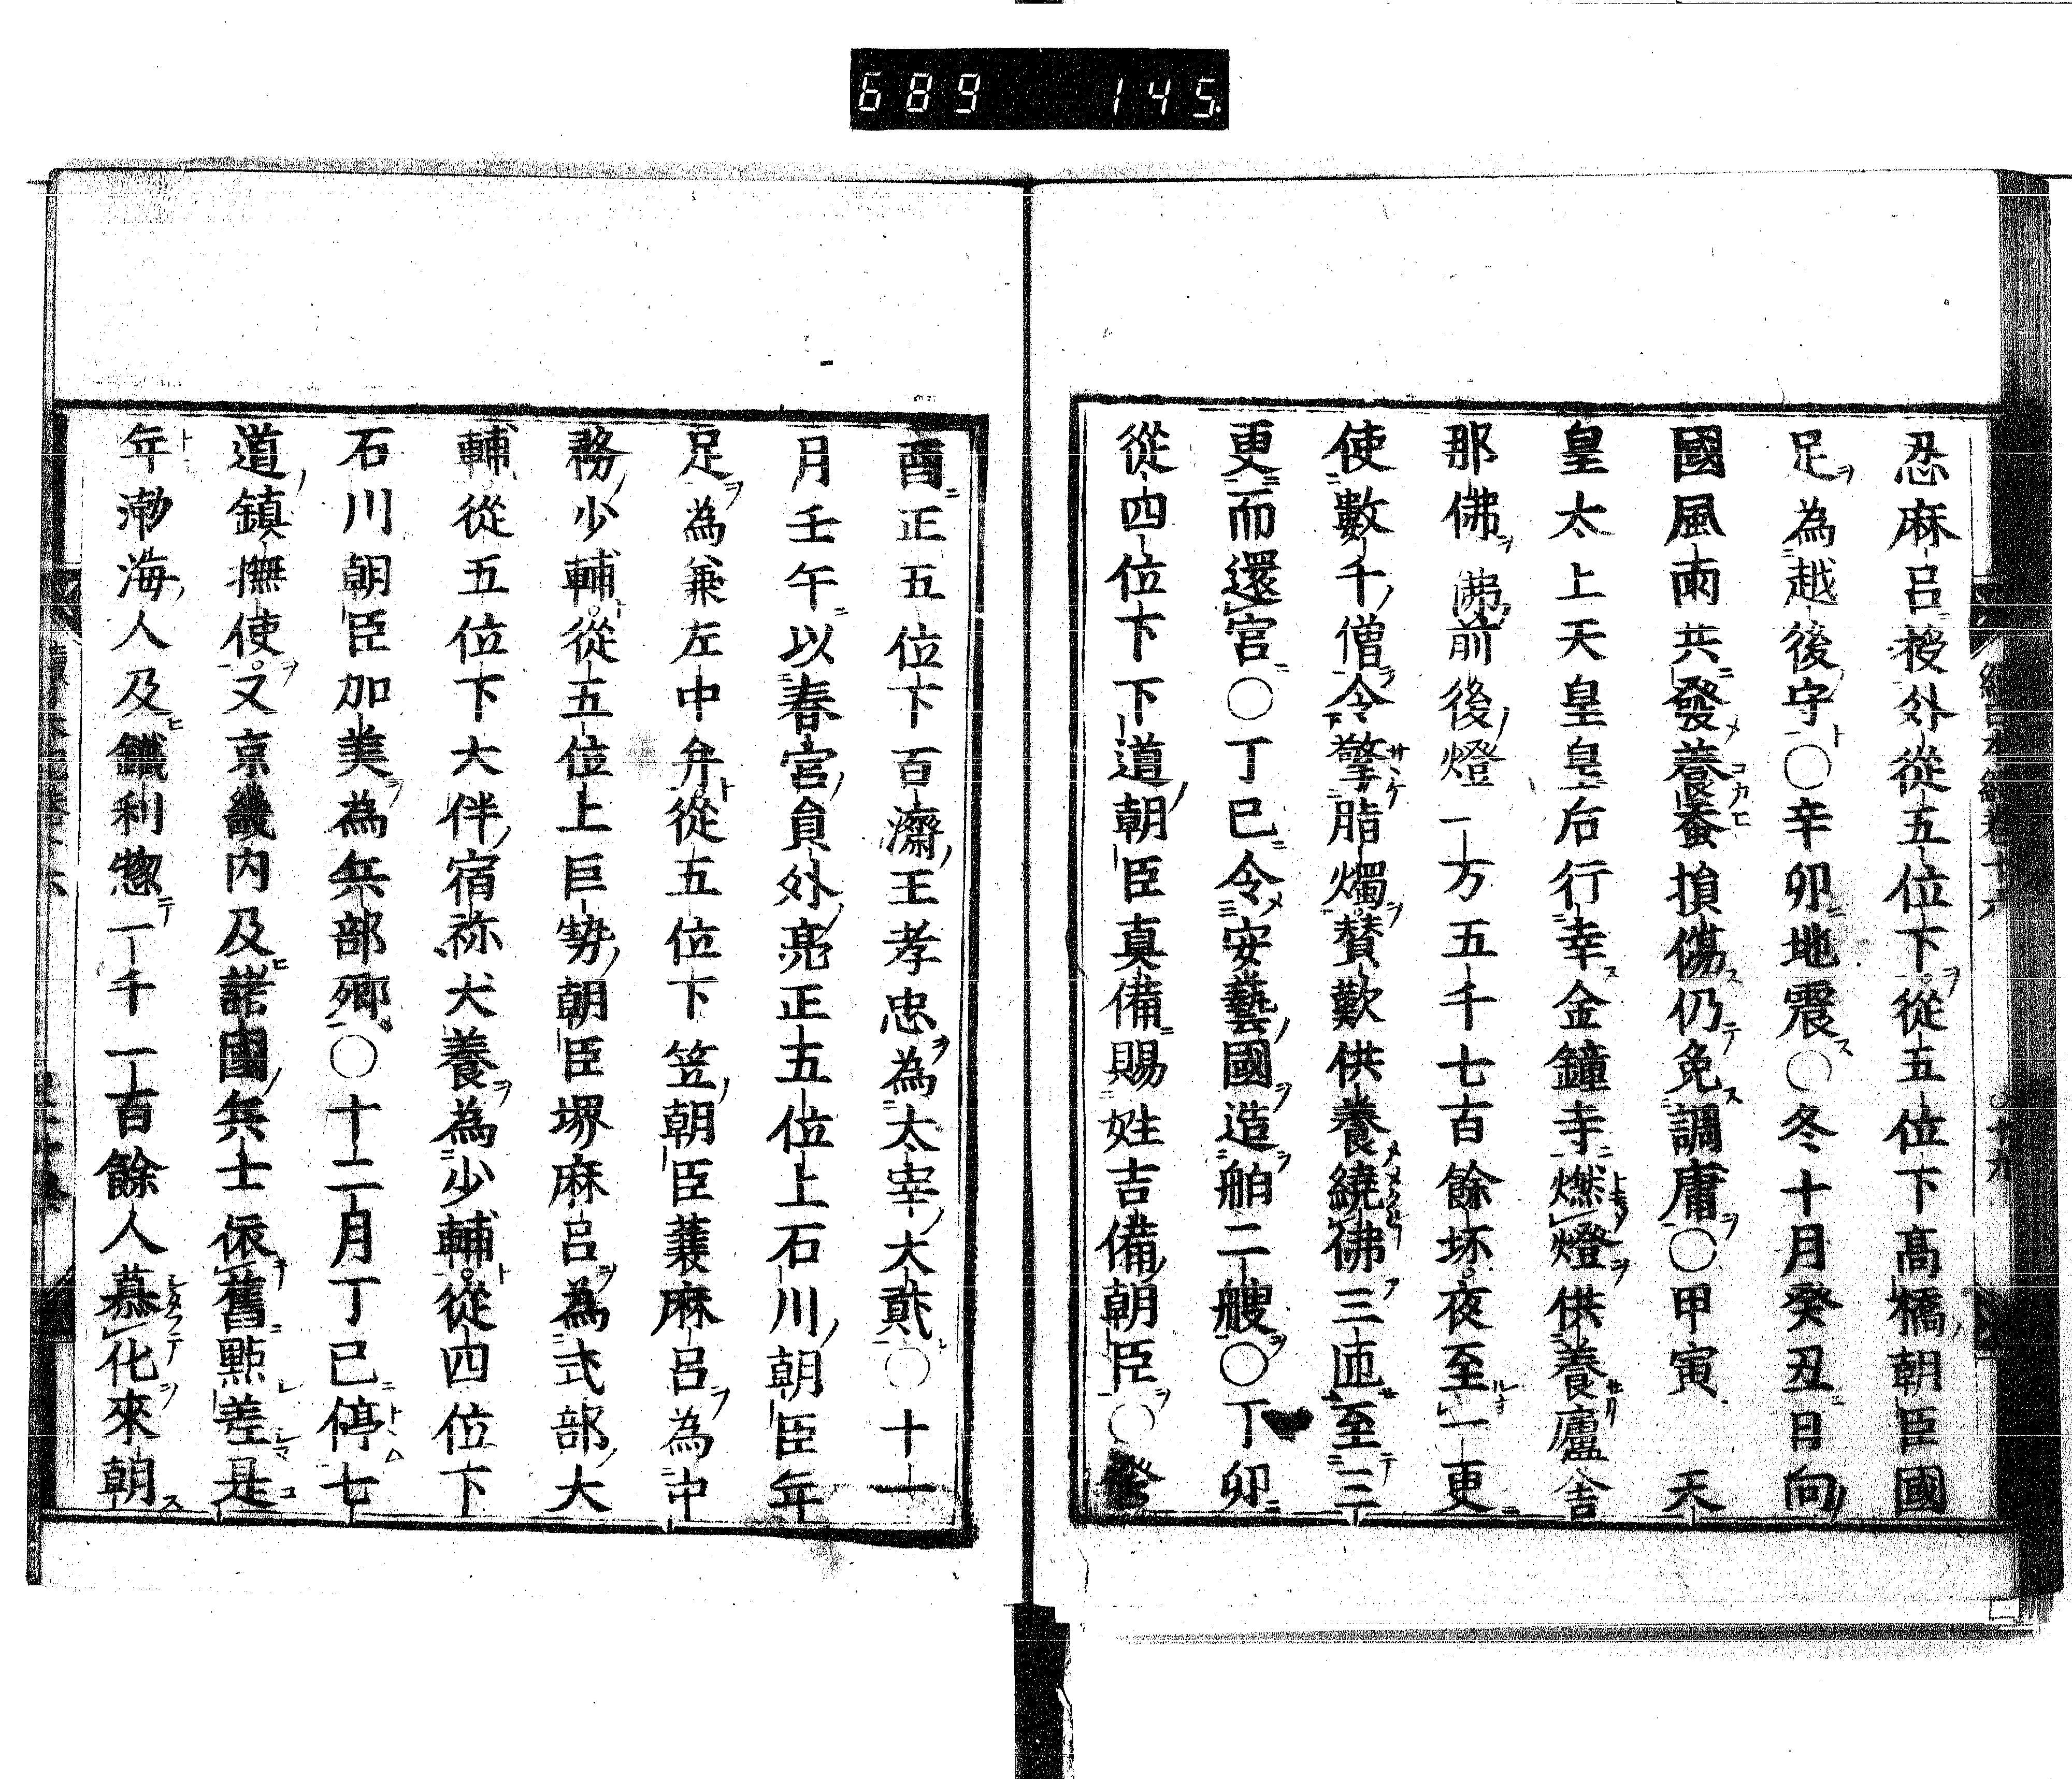 689 145
忍麻呂授外從五位下從五位下高橋朝臣國
足為越後守○辛卯地震○冬十月癸丑日向
國風雨共發養蚕損傷仍免調庸○甲寅 天
皇太上天皇皇后行幸金鐘寺燃燈供養廬舍
那佛佛前後燈一万五千七百餘坏夜至一更
使數千僧令擎脂燭賛歎供養繞佛三匝至三
更而還宮○丁巳令安藝國造舶二艘○丁卯
從四位下下道朝臣真備賜姓吉備朝臣○癸
酉正五位下百濟王孝忠為太宰大貳○十一
月壬午以春宮員外亮正五位上石川朝臣年
足為兼左中弁從五位下笠朝臣蓑麻呂為中
務少輔從五位上巨勢朝臣堺麻呂為式部大
輔從五位下大伴宿祢犬養為少輔從四位下
石川朝臣加美為兵部卿○十二月丁巳停七
道鎮撫使又京畿內及諸國兵士依舊點差是
年渤海人及鐵利惣一千一百餘人慕化來朝